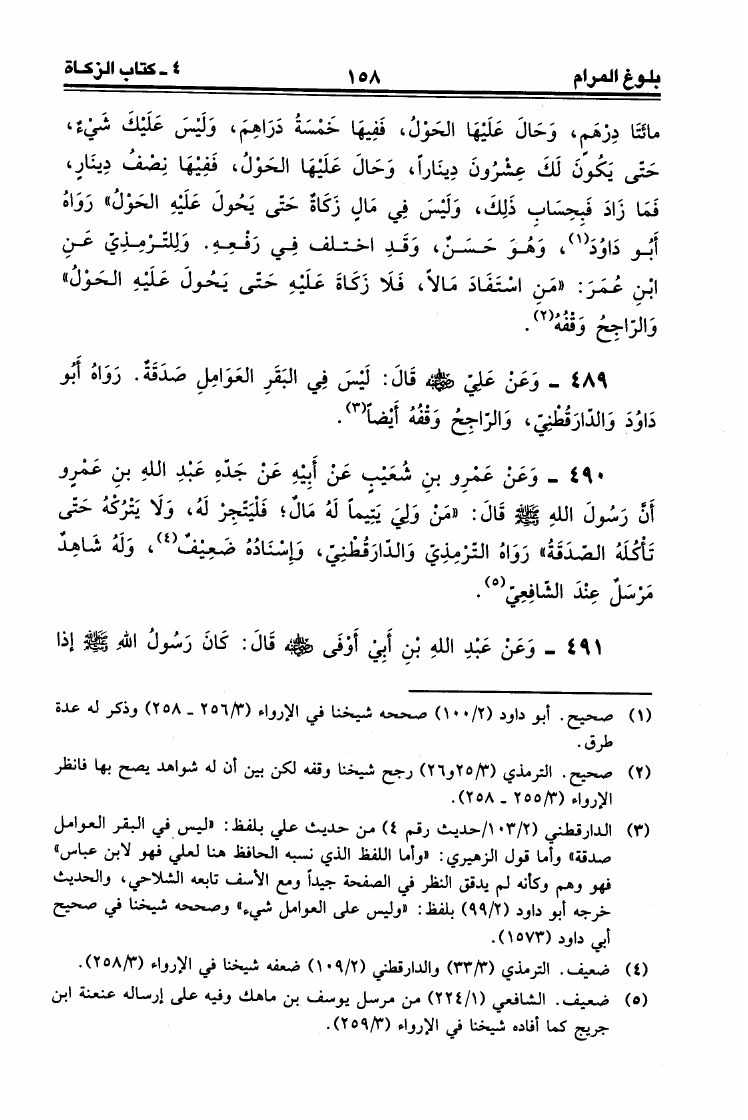 بلوغ المرام ١٥٨ ٤ - كتاب الزكاة
مائَتَا دِرْهَمٍ، وَحَالَ عَلَيْهَا الحَوْلُ، فَفِيهَا خَمْسَةُ دَرَاهِمَ، وَلَيْسَ عَلَيْكَ شَيْءٌ،
حَتَّى يَكُونَ لَكَ عِشْرُونَ دِينَاراً، وَحَالَ عَلَيْهَا الحَوْلُ، فَفِيْهَا نِصْفُ دِينَارٍ،
فَمَا زَادَ فَبِحِسَابِ ذَلِكَ، وَلَيْسَ فِي مَالٍ زَكَاةٌ حَتَّى يَحُولَ عَلَيْهِ الحَوْلُ» رَوَاهُ
أَبُو دَاوُدَ(١)، وَهُوَ حَسَنٌ، وَقَدِ اختلف فِي رَفْعِهِ. وَلِلتِّرْمِذِيِّ عَنِ
ابْنِ عُمَرَ: «مَنِ اسْتَفَادَ مَالاً، فَلَا زَكَاةَ عَلَيْهِ حَتَّى يَحُولَ عَلَيْهِ الحَوْلُ»
وَالرَّاجِحُ وَقْفُهُ(٢).
٤٨٩ - وَعَنْ عَلِيٍّ رضي الله عنه قَالَ: لَيْسَ فِي البَقَرِ العَوَامِلِ صَدَقَةٌ. رَوَاهُ أَبُو
دَاوُدَ وَالدَّارَقُطْنِيّ، وَالرَّاجِحُ وَقْفُهُ أَيْضاً(٣).
٤٩٠ - وَعَنْ عَمْرِو بنِ شُعَيْبٍ عَنْ أَبِيْهِ عَنْ جَدِّهِ عَبْدِ اللهِ بنِ عَمْرِو
أَنَّ رَسُولَ اللهِ ﷺ قَالَ: «مَنْ وَلِيَ يَتِيماً لَهُ مَالٌ؛ فَلْيَتَّجِرْ لَهُ، وَلَا يَتْرُكْهُ حَتَّى
تَأْكُلَهُ الصَّدَقَةُ» رَوَاهُ التِّرْمِذِيّ وَالدَّارَقُطْنِيّ، وَإِسْنَادُهُ ضَعِيْفٌ(٤)، وَلَهُ شَاهِدٌ
مَرْسَلٌ عِنْدَ الشَّافِعِيّ(٥).
٤٩١ - وَعَنْ عَبْدِ اللهِ بْنِ أَبِيْ أَوْفَى رضي الله عنه قَالَ: كَانَ رَسُولُ اللهِ ﷺ إِذَا
(١) صحيح. أبو داود (١٠٠/٢) صححه شيخنا في الإرواء (٢٥٦/٣ - ٢٥٨) وذكر له عدة
طرق.
(٢) صحيح. الترمذي (٢٥/٣و٢٦) رجح شيخنا وقفه لكن بين أن له شواهد يصح بها فانظر
الإرواء (٢٥٥/٣ - ٢٥٨).
(٣) الدارقطني (١٠٣/٢/حديث رقم ٤) من حديث علي بلفظ: «ليس في البقر العوامل
صدقة» وأما قول الزهيري: «وأما اللفظ الذي نسبه الحافظ هنا لعلي فهو لابن عباس»
فهو وهم وكأنه لم يدقق النظر في الصفحة جيداً ومع الأسف تابعه الشلاحي، والحديث
خرجه أبو داود (٩٩/٢) بلفظ: «وليس على العوامل شيء» وصححه شيخنا في صحيح
أبي داود (١٥٧٣).
(٤) ضعيف. الترمذي (٣٣/٣) والدارقطني (١٠٩/٢) ضعفه شيخنا في الإرواء (٢٥٨/٣).
(٥) ضعيف. الشافعي (٢٢٤/١) من مرسل يوسف بن ماهك وفيه على إرساله عنعنة ابن
جريج كما أفاده شيخنا في الإرواء (٢٥٩/٣).